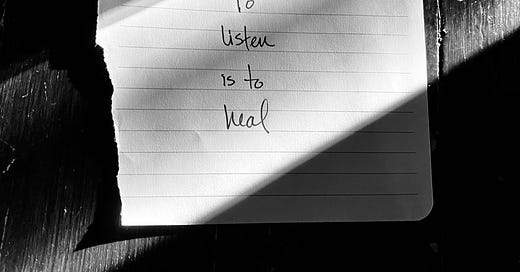 To
listen
is to
heal